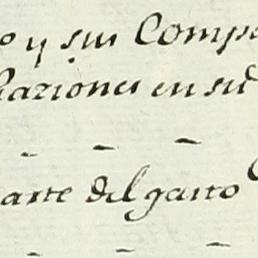 o y sus Comp
Raziones en su
arte del gasto